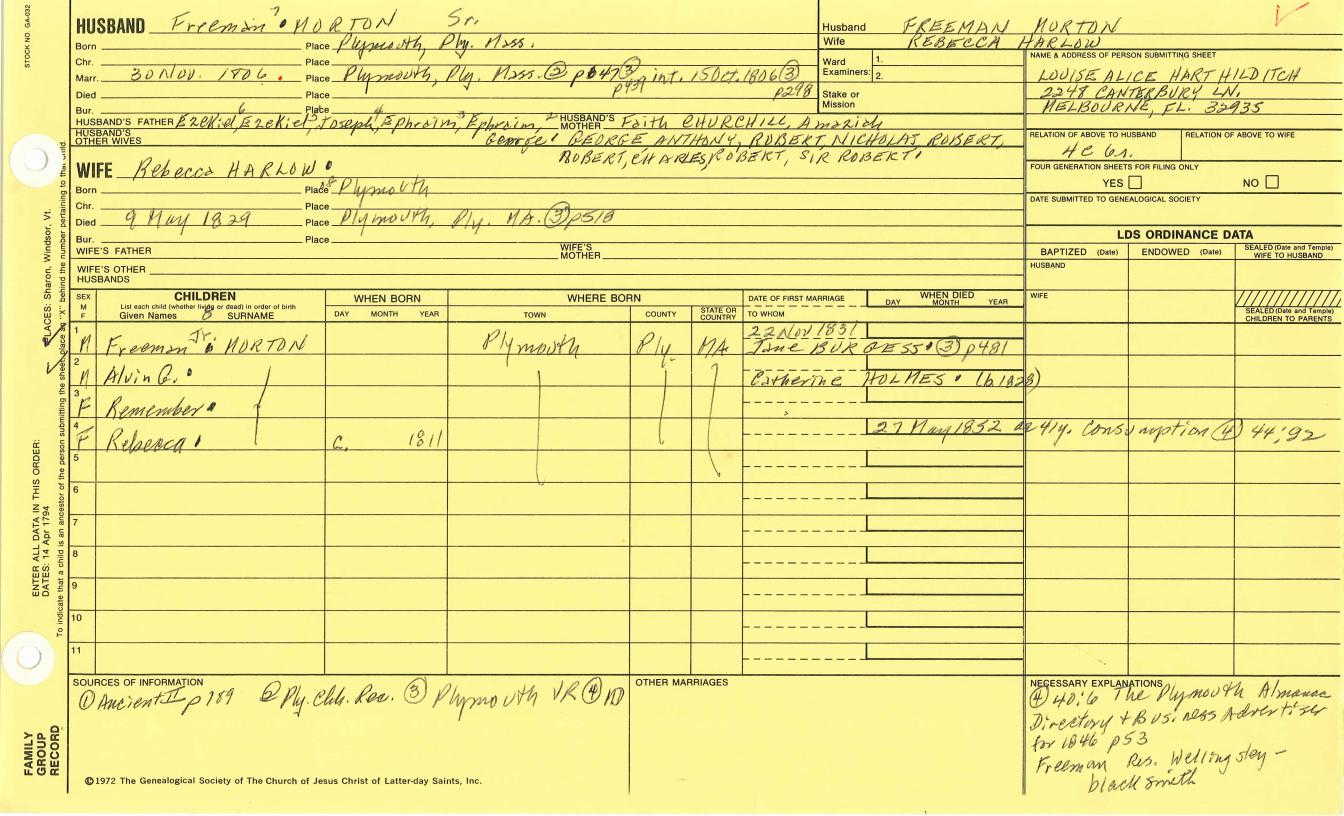 STOCK NO. GA-032
HUSBAND Freeman 7 MORTON Sr.
Born Place Plymouth, Ply. Mass.
Chr. Place
Marr. 30 Nov. 1806. Place Plymouth, Ply. Mass. ② p647 ③ int. 15 Oct. 1806 ③
p439 p298
Died Place
Bur. Place
HUSBAND'S FATHER Ezekiel, 6 Ezekiel, 5 Joseph, 4 Ephraim, 3 Ephraim, 2 HUSBAND'S MOTHER Faith CHURCHILL, Amaziah
HUSBAND'S OTHER WIVES George 1 GEORGE ANTHONY, ROBERT, NICHOLAS, ROBERT,
ROBERT, CHARLES, ROBERT, SIR ROBERT 1
Husband FREEMAN MORTON
Wife REBECCA HARLOW
Ward Examiners: 1.
2.
Stake or Mission
NAME & ADDRESS OF PERSON SUBMITTING SHEET
LOUISE ALICE HART HILDITCH
2248 CANTERBURY LN.
MELBOURNE, FL. 32935
RELATION OF ABOVE TO HUSBAND RELATION OF ABOVE TO WIFE
4C 6r.
FOUR GENERATION SHEETS FOR FILING ONLY
YES NO
DATE SUBMITTED TO GENEALOGICAL SOCIETY
WIFE Rebecca HARLOW
Born Place Plymouth
Chr. Place
Died 9 May 1829 Place Plymouth, Ply. MA. ③ p518
Bur. Place
WIFE'S FATHER WIFE'S MOTHER
WIFE'S OTHER HUSBANDS
LDS ORDINANCE DATA
BAPTIZED (Date) ENDOWED (Date) SEALED (Date and Temple) WIFE TO HUSBAND
HUSBAND
WIFE
SEALED (Date and Temple) CHILDREN TO PARENTS
SEX M F CHILDREN WHEN BORN WHERE BORN DATE OF FIRST MARRIAGE WHEN DIED
List each child (whether living or dead) in order of birth
Given Names 8 SURNAME DAY MONTH YEAR TOWN COUNTY STATE OR COUNTRY TO WHOM DAY MONTH YEAR
1 22 Nov 1831
M Freeman Jr. MORTON Plymouth Ply. MA Jane BURGESS ③ p481
2
M Alvin G. Catherine HOLMES (b 1828)
3
F Remember
4 27 May 1852 ae 41y. Consumption ④ 44:92
F Rebecca c. 1811
5
6
7
8
9
10
11
SOURCES OF INFORMATION
① Ancient II p189 ② Ply. Chh. Rec. ③ Plymouth VR ④ MD
OTHER MARRIAGES
NECESSARY EXPLANATIONS
④ 40:6 The Plymouth Almanac
Directory + Business Advertiser
for 1846 p53
Freeman Res. Wellingsley -
blacksmith
©1972 The Genealogical Society of The Church of Jesus Christ of Latter-day Saints, Inc.
FAMILY GROUP RECORD
ENTER ALL DATA IN THIS ORDER:
DATES: 14 Apr 1794
PLACES: Sharon, Windsor, Vt.
To indicate that a child is an ancestor of the person submitting the sheet, place an "X" behind the number pertaining to that child.